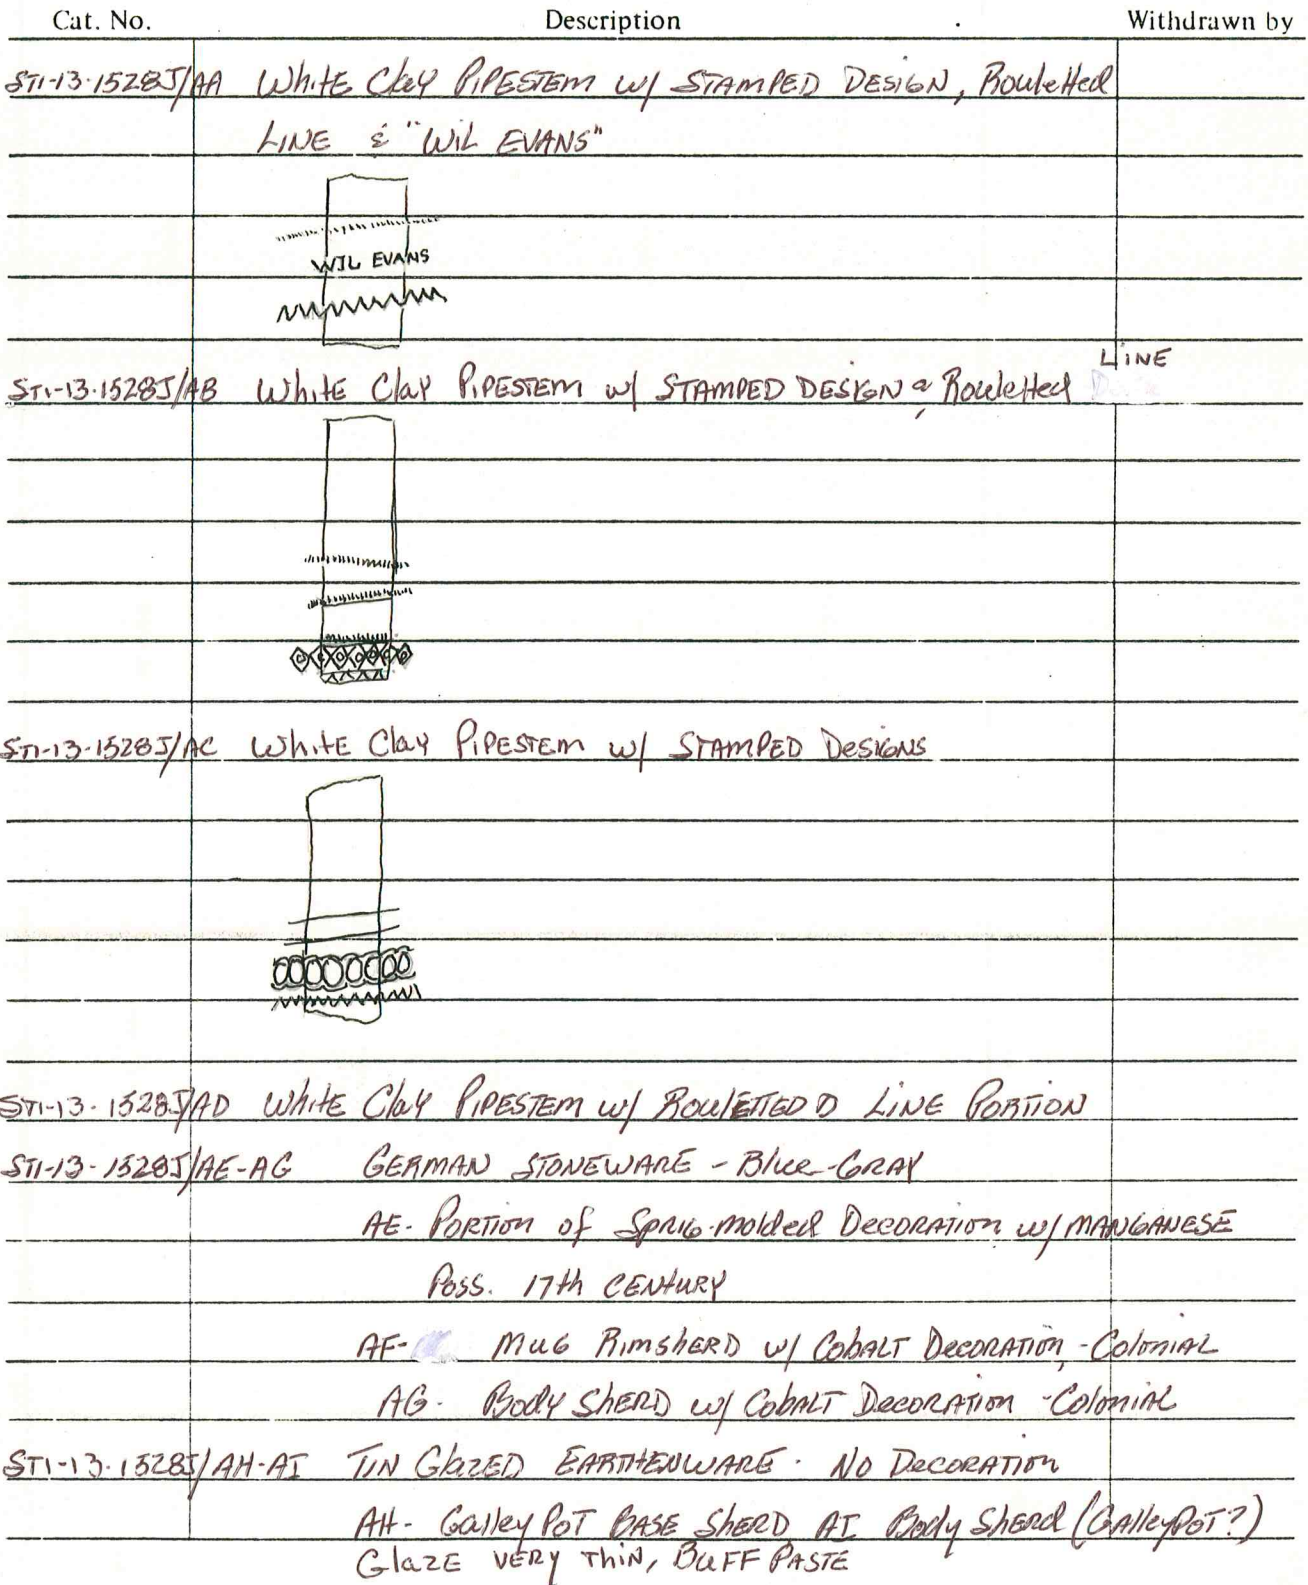 Cat. No. Description Withdrawn by
ST1-13-1528J/AA White Clay PIPESTEM w/ STAMPED DESIGN, Rouletted
LINE & "WIL EVANS"
WIL EVANS
LINE
ST1-13-1528J/AB White Clay PIPESTEM w/ STAMPED DESIGN & Rouletted
ST1-13-1528J/AC White Clay PIPESTEM w/ STAMPED DESIGNS
ST1-13-1528J/AD White Clay PIPESTEM w/ ROULETTED LINE PORTION
ST1-13-1528J/AE-AG GERMAN STONEWARE - Blue-GRAY
AE- PORTION of Sprig-molded DECORATION w/ MANGANESE
Poss. 17th CENTURY
AF- Mug RimSHERD w/ Cobalt DECORATION, -Colonial
AG- Body SHERD w/ Cobalt DECORATION -Colonial
ST1-13-1528J/AH-AI TIN Glazed EARTHENWARE. No DECORATION
AH- Galley Pot BASE Sherd AI Body Sherd (GalleyPot?)
Glaze VERY Thin, BUFF PASTE